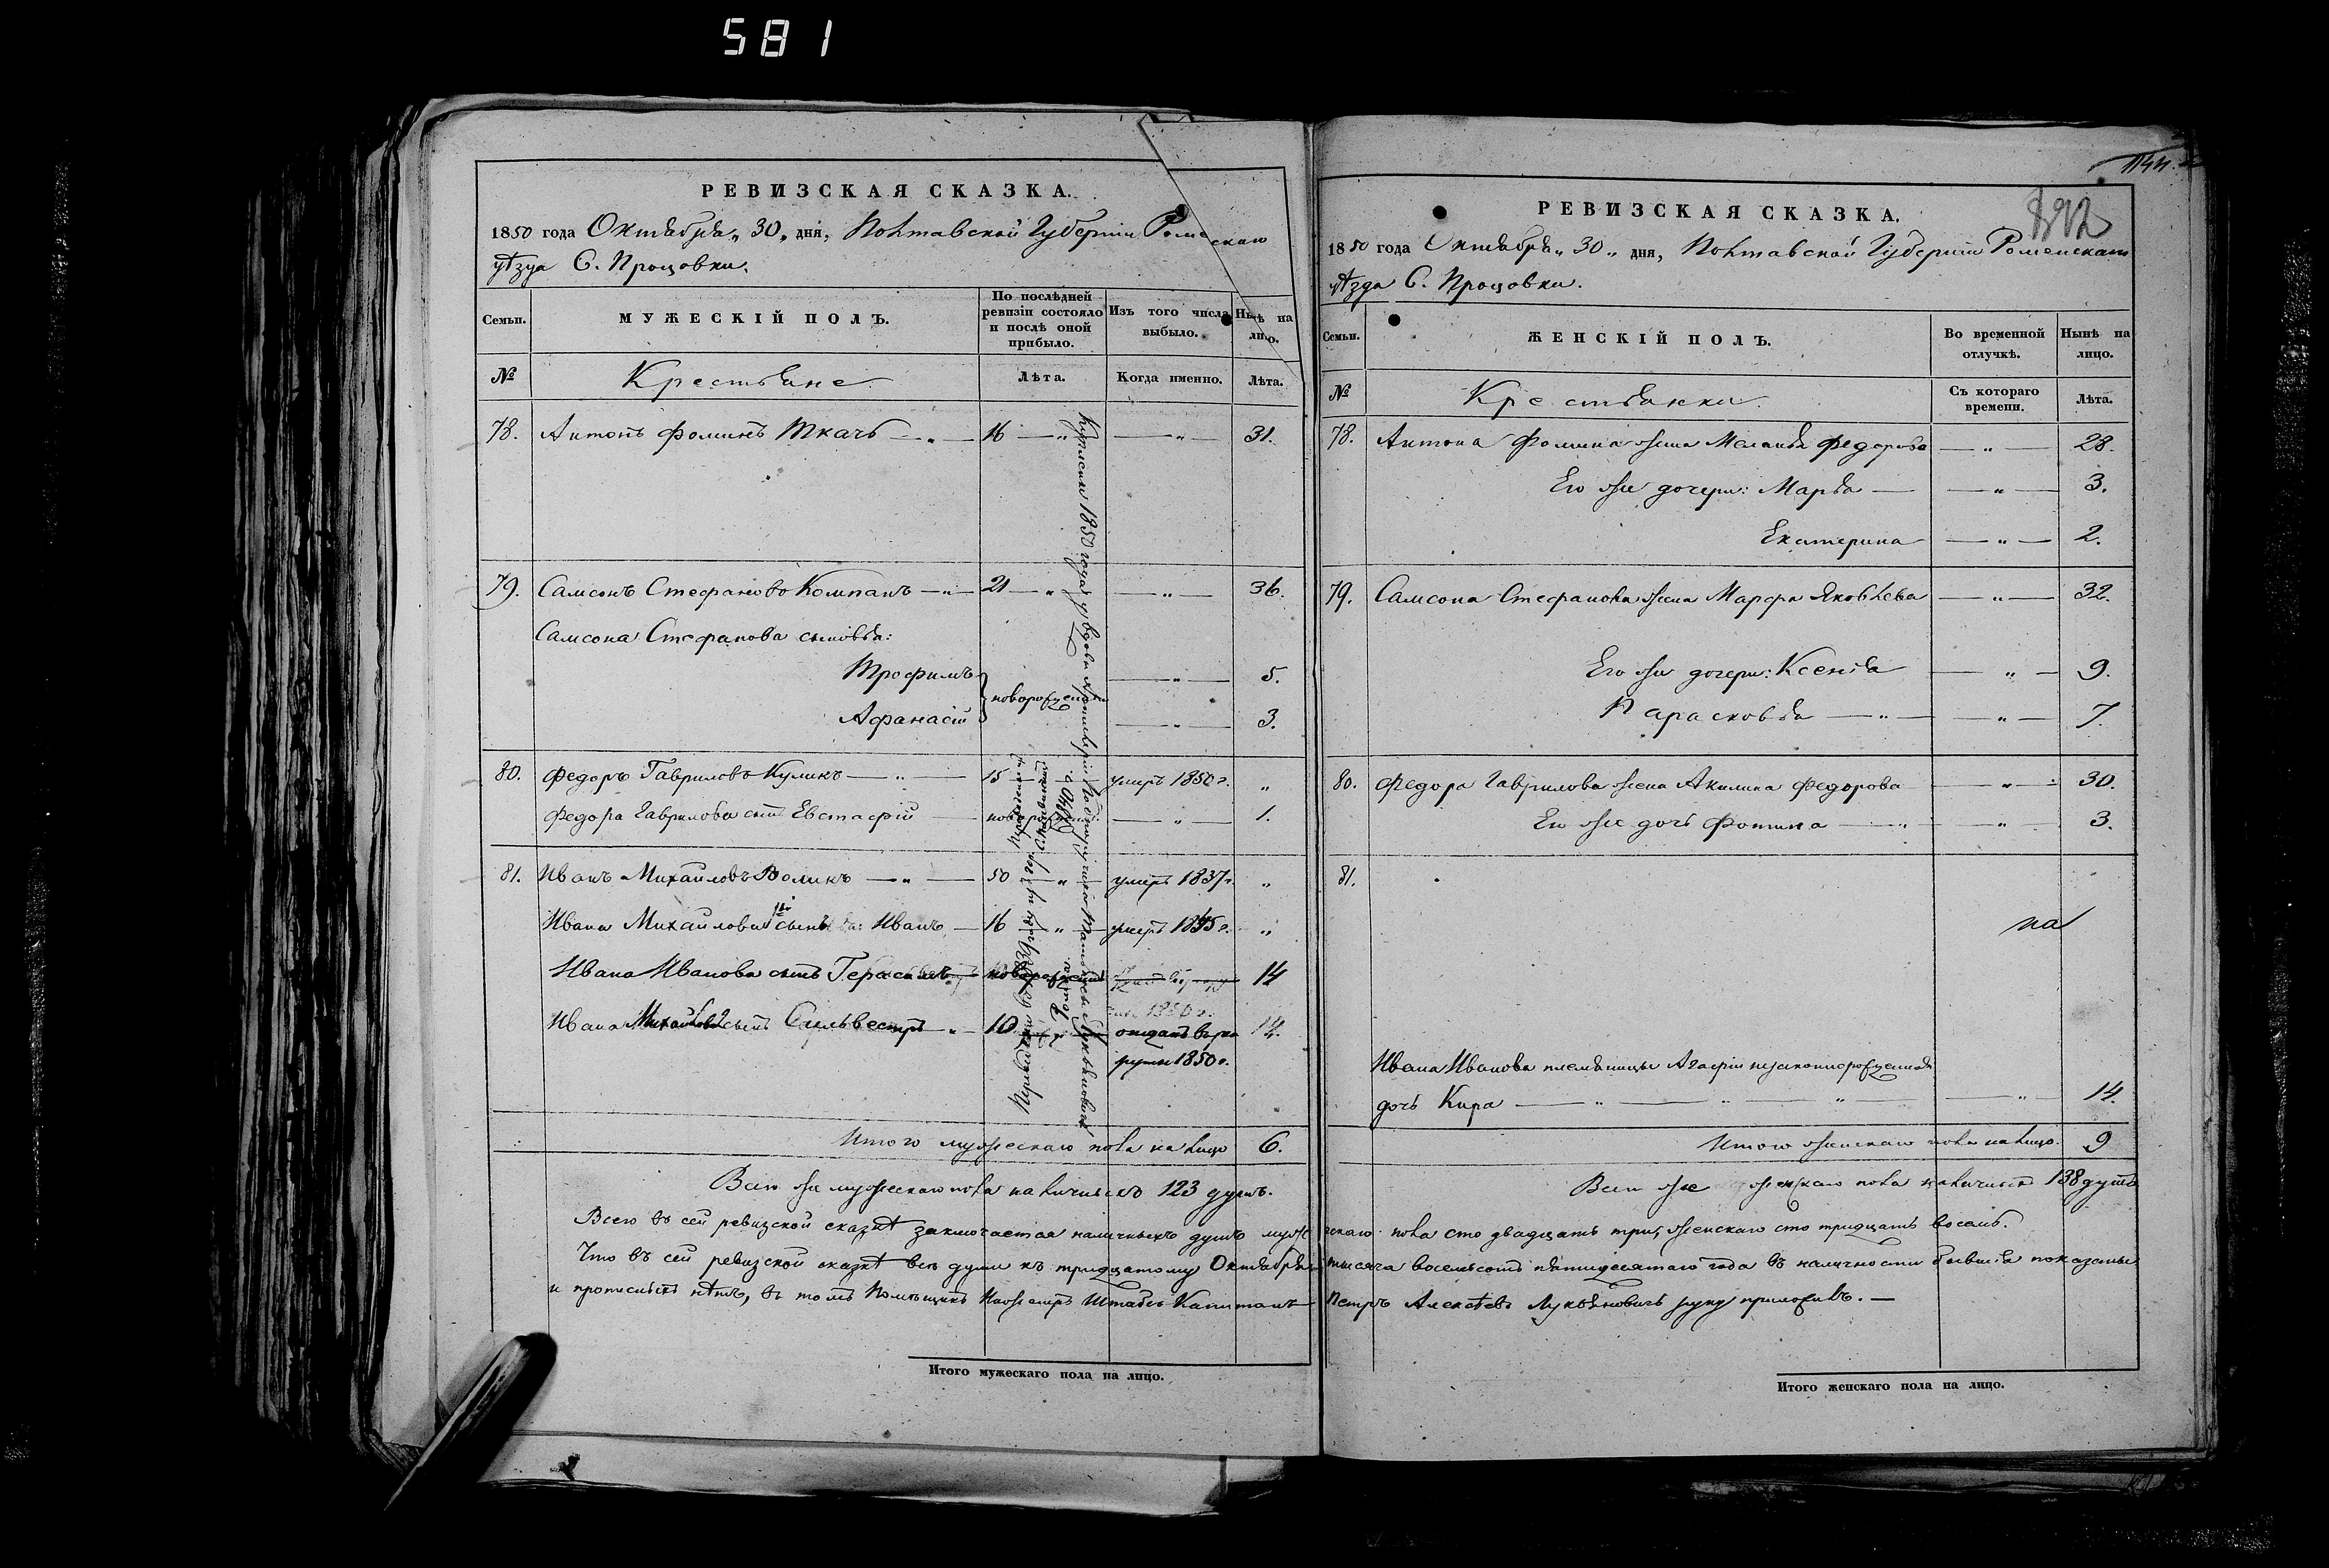 581
РЕВИЗСКАЯ СКАЗКА.
1850 года Октября „30„ дня, Полтавской Губерніи Роменскаго
уѣзда С. Процовки.
Семьи. МУЖЕСКІЙ ПОЛЪ. По послѣдней ревизіи состояло и послѣ оной прибыло. Изъ того числа выбыло. Нынѣ на лицо.
№ Крестьяне. Лѣта. Когда именно. Лѣта.
78. Антонъ Фоминъ Ткачъ — „ — 16 — „ — „ — 31.
79. Самсонъ Стефановъ Компанъ — „ — 21 — „ — „ — 36.
Самсона Стефанова сыновья:
Трофимъ новорожденные — „ — 5.
Афанасій — „ — 3.
80. Федоръ Гавриловъ Куликъ — „ — 15 — умеръ 1850 г. „
Федора Гаврилова сынъ Евстафій — „ — 1.
81. Иванъ Михайловъ Воликъ — „ — 50 — „ — умеръ 1837 г. „
Ивана Михайлова сынъ Иванъ — 16 — „ — умеръ 1845 г. „
Ивана Иванова сынъ Герасимъ новорожденъ 14
Ивана Михайлова сынъ Сильвестръ „ 10 отданъ въ рек
руты 1850 г. 14.
Итого мужескаго пола на лицо 6.
Всего же мужескаго пола наличныхъ 123 душъ.
Итого мужескаго пола на лицо.
1144.
892
РЕВИЗСКАЯ СКАЗКА.
1850 года Октября „30„ дня, Полтавской Губерніи Роменскаго
уѣзда С. Процовки.
Семьи. ЖЕНСКІЙ ПОЛЪ. Во временной отлучкѣ. Нынѣ на лицо.
№ Крестьянки. Съ котораго времени. Лѣта.
78. Антона Фомина жена Меланья Федорова — „ — 28.
Его же дочери: Марья — „ — 3.
Екатерина — „ — 2.
79. Самсона Стефанова жена Марфа Яковлева — „ — 32.
Его же дочери: Ксенія — „ — 9.
Парасковья — „ — „ — 7.
80. Федора Гаврилова жена Акилина Федорова — „ — 30.
Его же дочь Фотина — „ — 3.
81.
на
Ивана Иванова племяницы Агафіи незаконнорожденная
дочь Кира — „ — „ — „ — „ 14.
Итого женскаго пола на лицо. 9
Всего же женскаго пола наличныхъ 138 душъ
Всего въ сей ревизской сказкѣ заключается наличныхъ душъ мужескаго пола сто двадцать три, женскаго сто тридцать восемь.
Что въ сей ревизской сказкѣ всѣ души къ тридцатому Октября тысяча восемьсотъ пятидесятаго года въ наличности бывшія показаны
и прописныхъ нѣтъ, въ томъ Помѣщикъ Штабсъ Капитанъ Петръ Алексѣевъ Лукьяновичъ руку приложилъ. —
Итого женскаго пола на лицо.